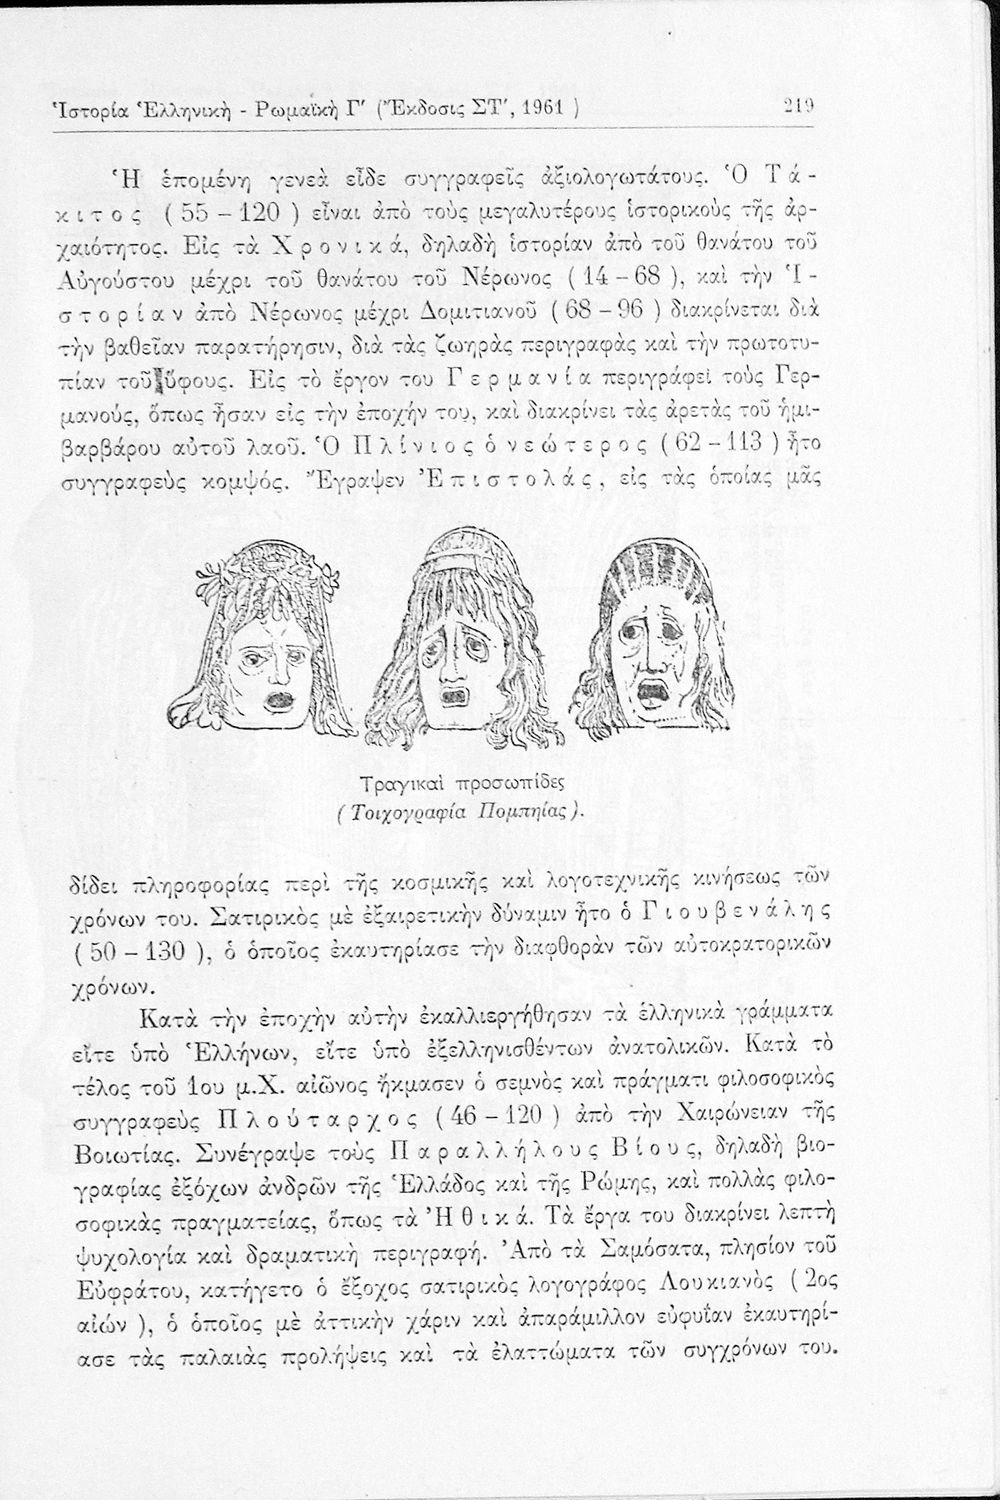 Ἱστορία Ἑλληνικὴ - Ρωμαϊκὴ Γ' (Ἔκδοσις ΣΤ', 1961) 219
Ἡ ἑπομένη γενεὰ εἶδε συγγραφεῖς ἀξιολογωτάτους. Ὁ Τά-
κιτος (55 – 120) εἶναι ἀπὸ τοὺς μεγαλυτέρους ἱστορικοὺς τῆς ἀρ-
χαιότητος. Εἰς τὰ Χρονικά, δηλαδὴ ἱστορίαν ἀπὸ τοῦ θανάτου τοῦ
Αὐγούστου μέχρι τοῦ θανάτου τοῦ Νέρωνος (14 – 68), καὶ τὴν Ἱ-
στορίαν ἀπὸ Νέρωνος μέχρι Δομιτιανοῦ (68 – 96) διακρίνεται διὰ
τὴν βαθεῖαν παρατήρησιν, διὰ τὰς ζωηρὰς περιγραφὰς καὶ τὴν πρωτοτυ-
πίαν τοῦ ὕφους. Εἰς τὸ ἔργον του Γερμανία περιγράφει τοὺς Γερ-
μανούς, ὅπως ἦσαν εἰς τὴν ἐποχήν του, καὶ διακρίνει τὰς ἀρετὰς τοῦ ἡμι-
βαρβάρου αὐτοῦ λαοῦ. Ὁ Πλίνιος ὁ νεώτερος (62 – 113) ἦτο
συγγραφεὺς κομψός. Ἔγραψεν Ἐπιστολάς, εἰς τὰς ὁποίας μᾶς
Τραγικαὶ προσωπίδες
(Τοιχογραφία Πομπηίας).
δίδει πληροφορίας περὶ τῆς κοσμικῆς καὶ λογοτεχνικῆς κινήσεως τῶν
χρόνων του. Σατιρικὸς μὲ ἐξαιρετικὴν δύναμιν ἦτο ὁ Γιουβενάλης
(50 – 130), ὁ ὁποῖος ἐκαυτηρίασε τὴν διαφθορὰν τῶν αὐτοκρατορικῶν
χρόνων.
Κατὰ τὴν ἐποχὴν αὐτὴν ἐκαλλιεργήθησαν τὰ ἑλληνικὰ γράμματα
εἴτε ὑπὸ Ἑλλήνων, εἴτε ὑπὸ ἐξελληνισθέντων ἀνατολικῶν. Κατὰ τὸ
τέλος τοῦ 1ου μ.Χ. αἰῶνος ἤκμασεν ὁ σεμνὸς καὶ πράγματι φιλοσοφικὸς
συγγραφεὺς Πλούταρχος (46 – 120) ἀπὸ τὴν Χαιρώνειαν τῆς
Βοιωτίας. Συνέγραψε τοὺς Παραλλήλους Βίους, δηλαδὴ βιο-
γραφίας ἐξόχων ἀνδρῶν τῆς Ἑλλάδος καὶ τῆς Ρώμης, καὶ πολλὰς φιλο-
σοφικὰς πραγματείας, ὅπως τὰ Ἠθικά. Τὰ ἔργα του διακρίνει λεπτὴ
ψυχολογία καὶ δραματικὴ περιγραφή. Ἀπὸ τὰ Σαμόσατα, πλησίον τοῦ
Εὐφράτου, κατήγετο ὁ ἔξοχος σατιρικὸς λογογράφος Λουκιανὸς (2ος
αἰών), ὁ ὁποῖος μὲ ἀττικὴν χάριν καὶ ἀπαράμιλλον εὐφυΐαν ἐκαυτηρί-
ασε τὰς παλαιὰς προλήψεις καὶ τὰ ἐλαττώματα τῶν συγχρόνων του.